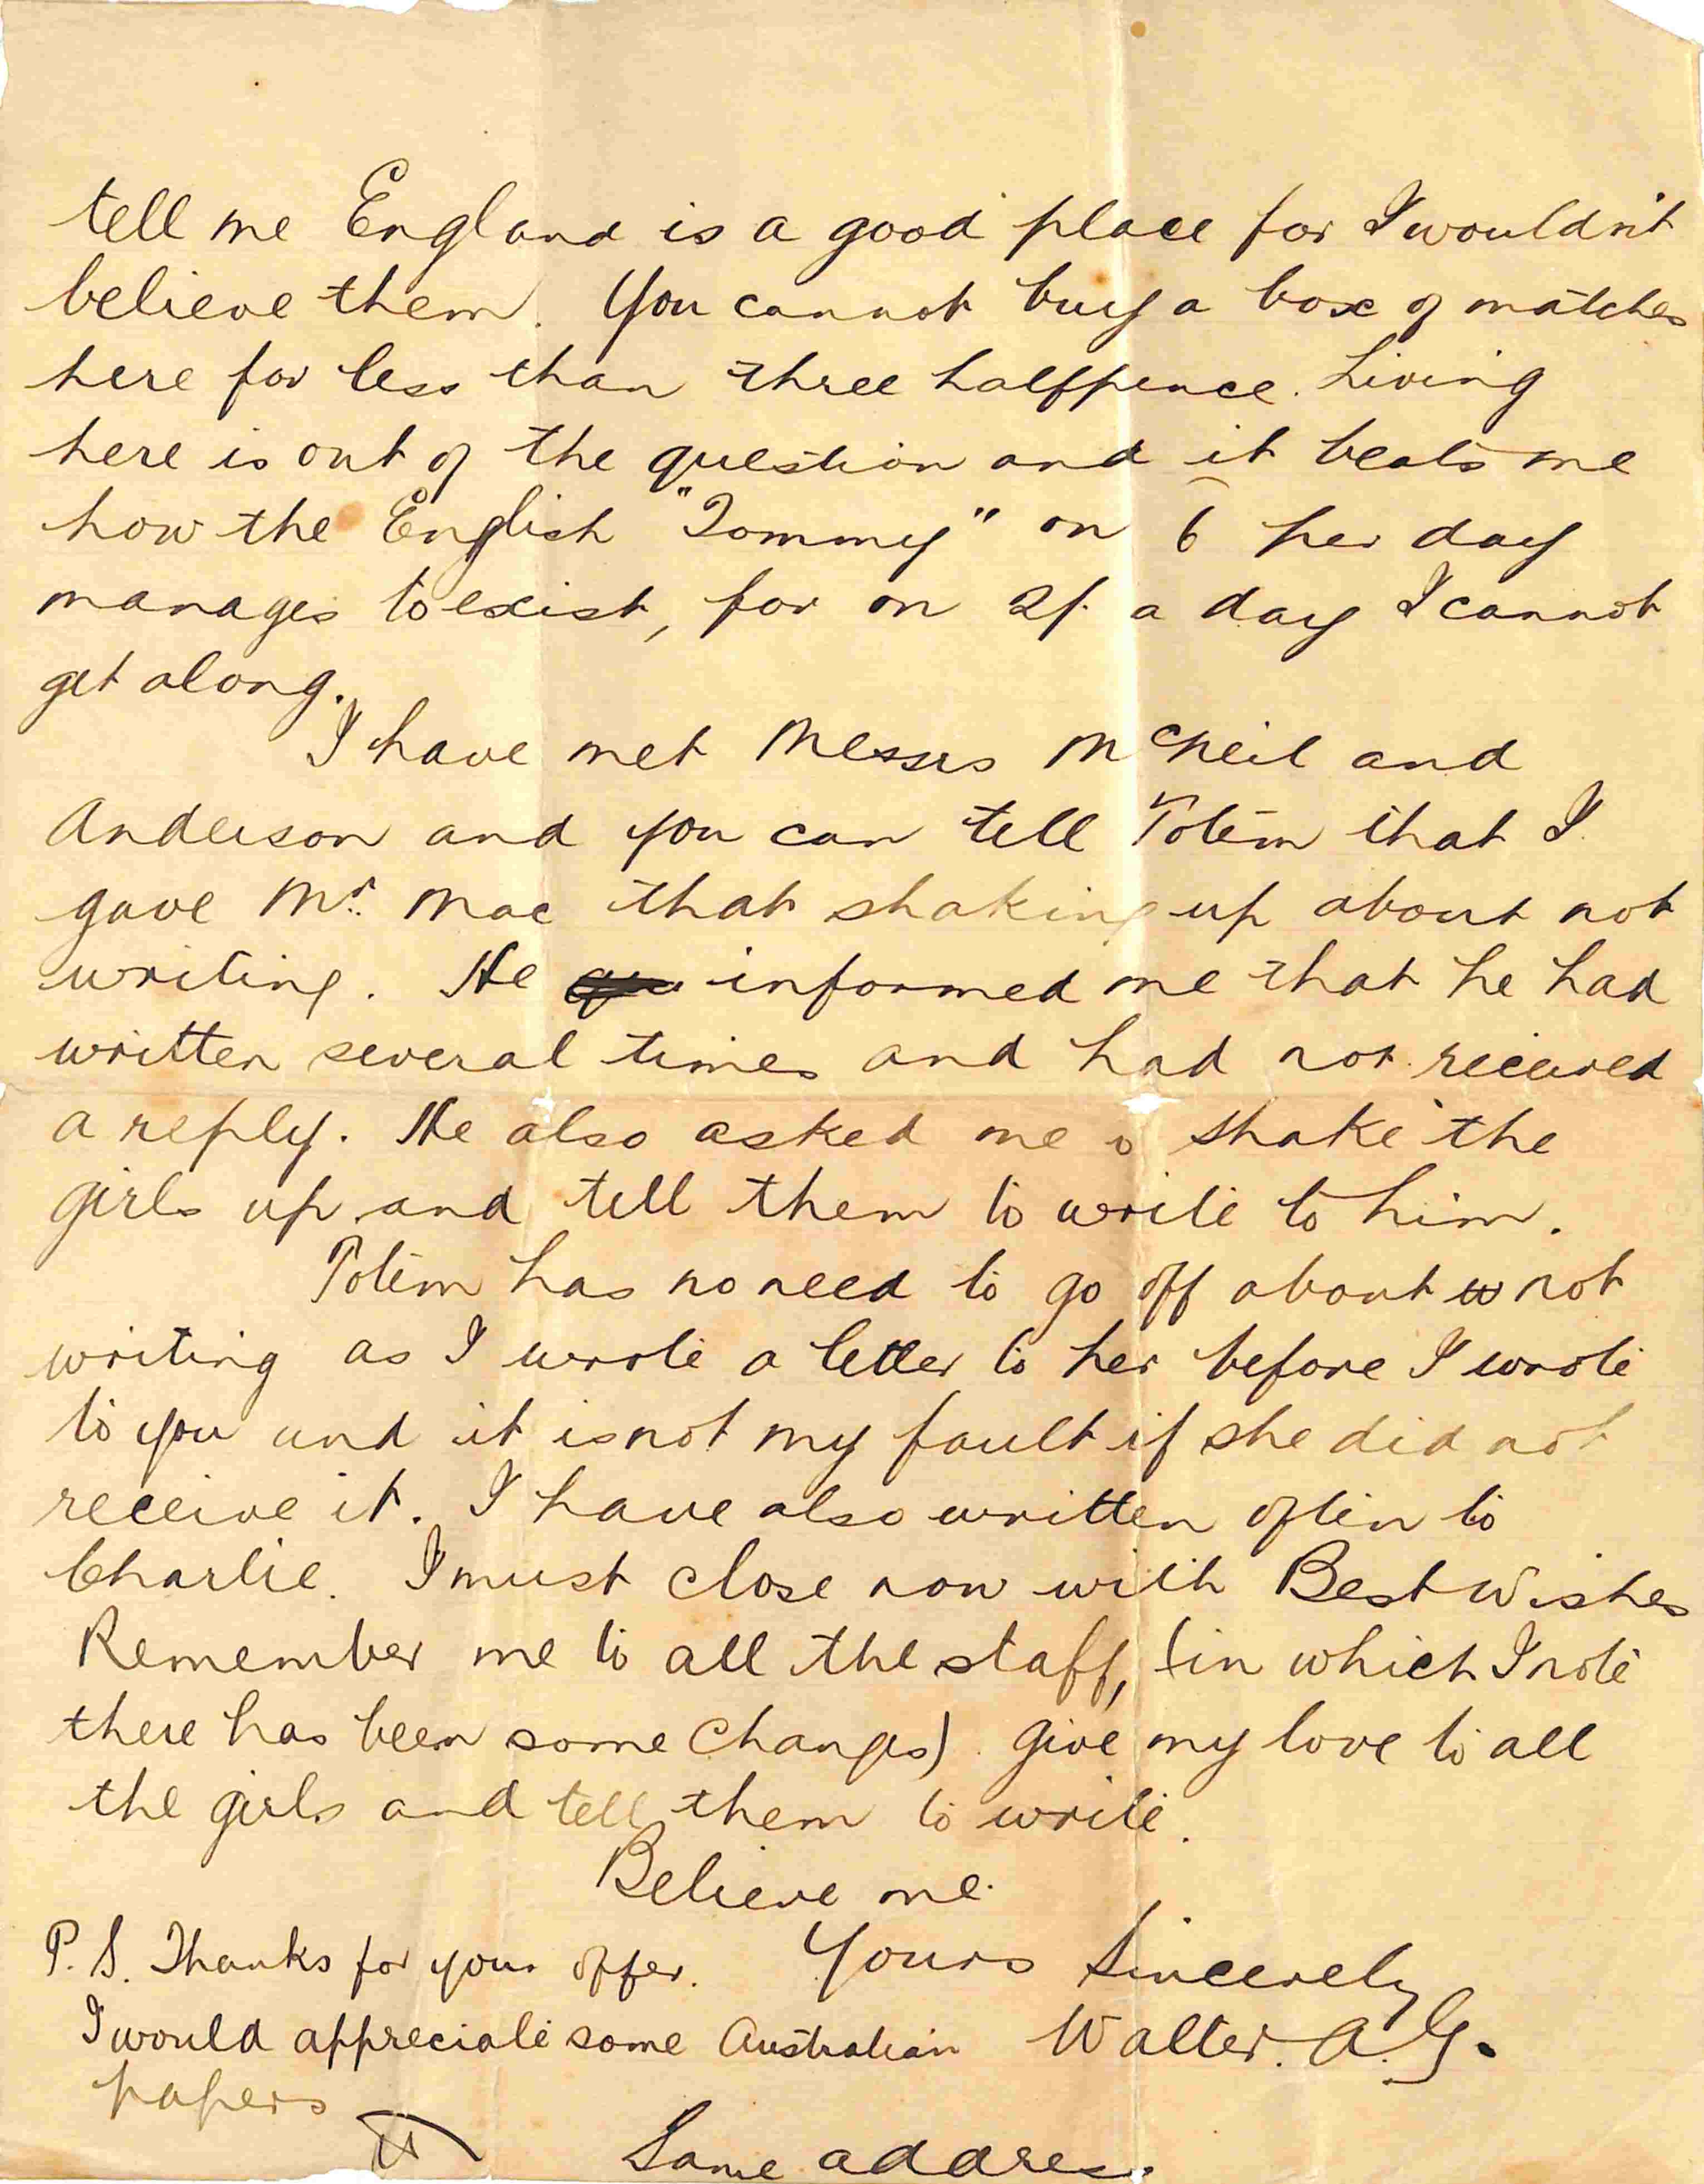 tell me England is a good place for I wouldn't
believe them. You cannot buy a box of matches
here for less than three halfpence. Living
here is out of the question and it beats me
how the English "Tommy" on 6 per day
manages to exist, for on 2/- a day I cannot
get along.
I have met Messrs McNeil and
Anderson and you can tell Totem that I
gave Mr. Mac that shaking up about not
writing. He informed me that he had
written several times and had not received
a reply. He also asked me to shake the
girls up and tell them to write to him.
Totem has no need to go off about not
writing as I wrote a letter to her before I wrote
to you and it is not my fault if she did not
receive it. I have also written often to
Charlie. I must close now with Best Wishes
Remember me to all the staff, (in which I note
there has been some changes) give my love to all
the girls and tell them to write.
Believe me
Yours Sincerely
Walter. A. G.
P.S. Thanks for your offer.
I would appreciate some Australian
papers
Same address.